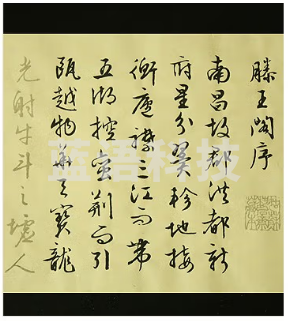 滕王阁序
南昌故郡洪都新
府星分翼轸地接
衡庐襟三江而带
五湖控蛮荆而引
瓯越物华天宝龙
光射牛斗之墟人
蓝语科技